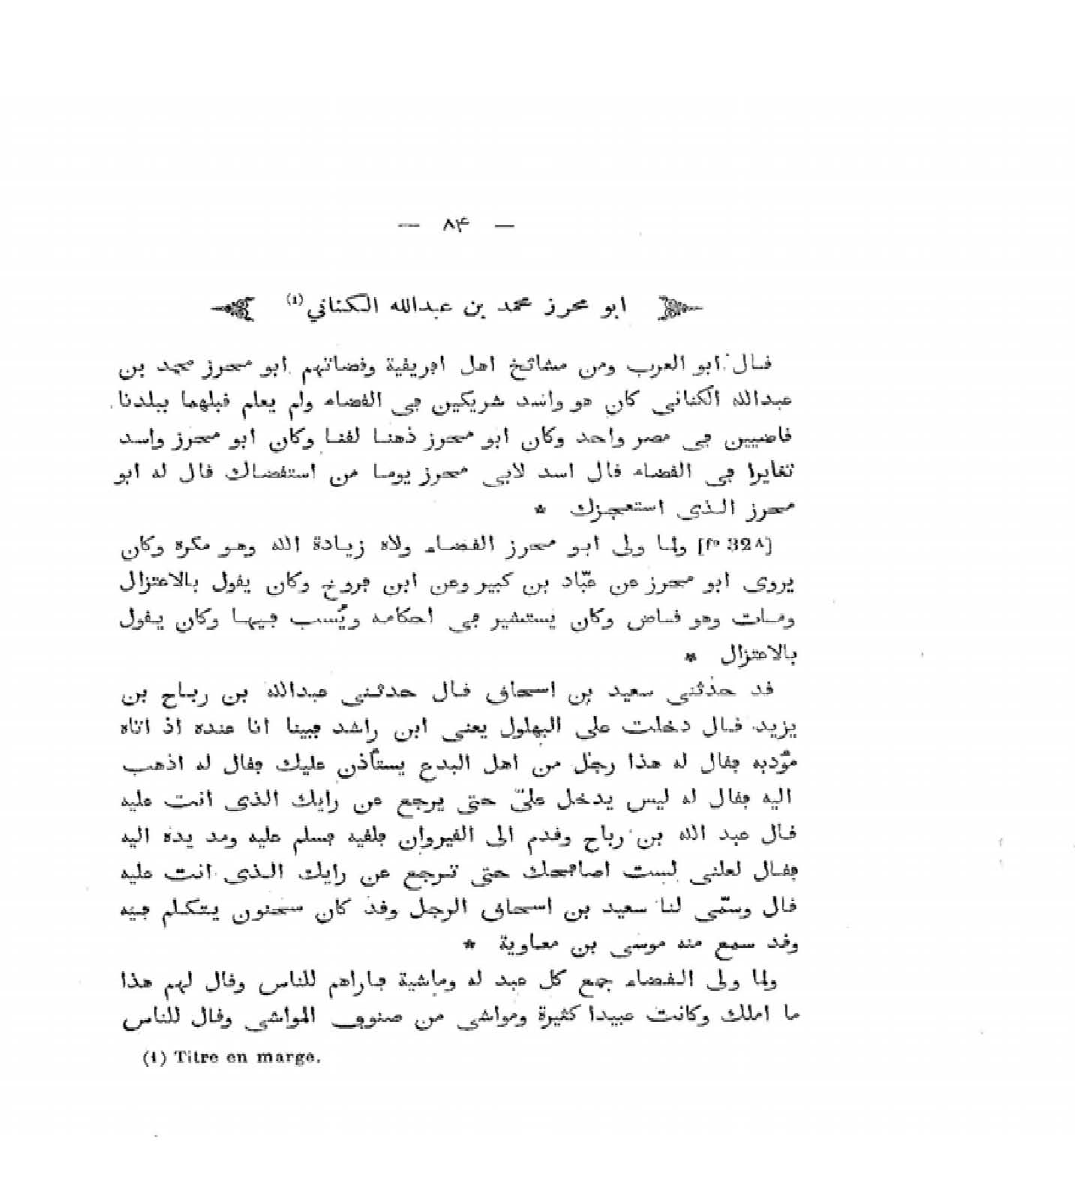 — ٨۴ —
ابو محرز محمد بن عبدالله الكناني (1)
قال ابو العرب ومن مشائخ اهل افريقية وقضاتهم ابو محرز محمد بن
عبدالله الكناني كان هو واسد شريكين في القضاء ولم يعلم قبلهما ببلدنا
قاضيين في مصر واحد وكان ابو محرز ذهنا لقنا وكان ابو محرز واسد
تغايرا في القضاء قال اسد لابي محرز يوما من استقضاك قال له ابو
محرز الذى استعجزك *
[f° 32^] ولما ولى ابو محرز القضاء ولاه زيادة الله وهو مكره وكان
يروى ابو محرز عن عبّاد بن كبير وعن ابن فروخ وكان يقول بالاعتزال
ومات وهو قاض وكان يستشير في احكامه ويُسب فيها وكان يقول
بالاعتزال *
قد حدّثنى سعيد بن اسحاق قال حدثنى عبدالله بن رباح بن
يزيد قال دخلت على البهلول يعنى ابن راشد فبينا انا عنده اذ اتاه
مؤدبه فقال له هذا رجل من اهل البدع يستأذن عليك فقال له اذهب
اليه فقال له ليس يدخل علىّ حتى يرجع عن رايك الذى انت عليه
قال عبد الله بن رباح وقدم الى القيروان فلقيه فسلم عليه ومد يده اليه
فقال لعلنى لست اصافحك حتى ترجع عن رايك الذى انت عليه
قال وسمّى لنا سعيد بن اسحاق الرجل وقد كان سحنون يتكلم فيه
وقد سمع منه موسى بن معاوية *
ولما ولى القضاء جمع كل عبد له وماشية فاراهم للناس وقال لهم هذا
ما املك وكانت عبيدا كثيرة ومواشى من صنوف المواشى وقال للناس
(1) Titre en marge.